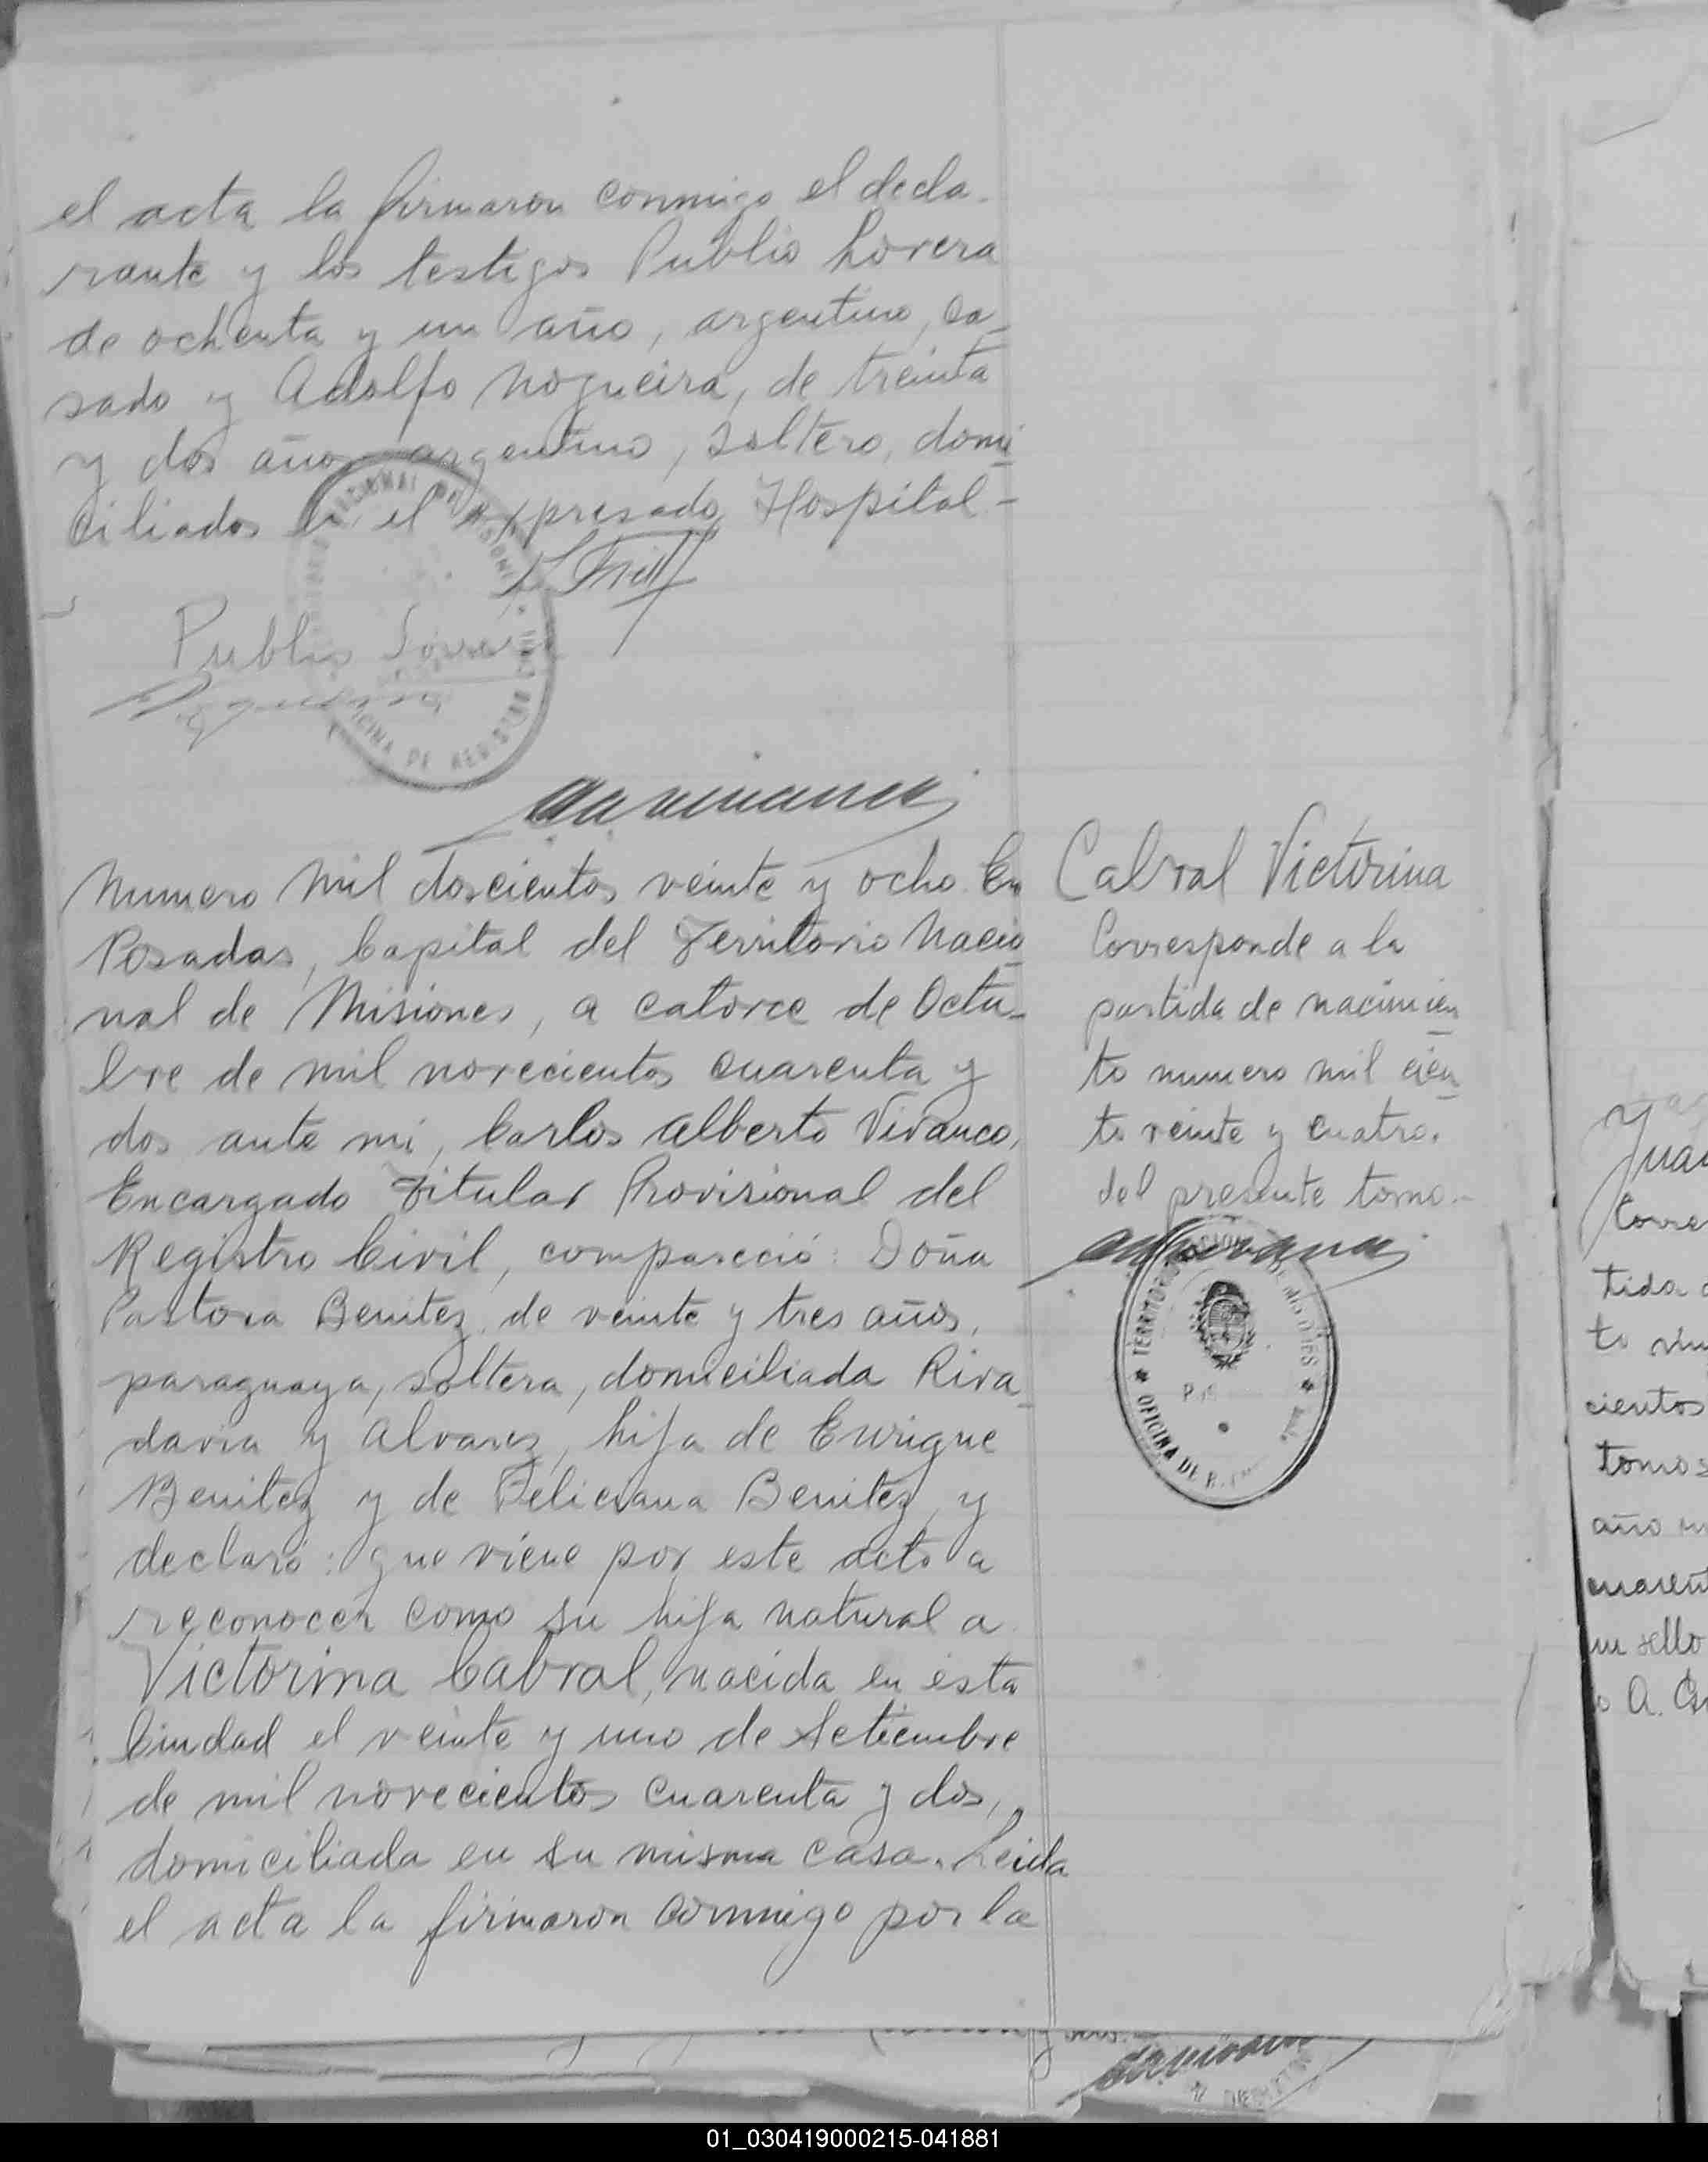 el acta la firmaron conmigo el decla-
rante y los testigos Publio Lovera
de ochenta y un año, argentino, ca-
sado y Adolfo Nogueira, de treinta
y dos años, argentino, soltero, domi
ciliados en el expresado Hospital-
Publio Lovera
Numero mil doscientos veinte y ocho En
Posadas, Capital del Territorio Nacio
nal de Misiones, a catorce de Octu-
bre de mil novecientos cuarenta y
dos ante mi, Carlos Alberto Vivanco,
Encargado Titular Provisional del
Registro Civil, compareció: Doña
Pastora Benitez, de veinte y tres años,
paraguaya, soltera, domiciliada Riva
davia y Alvarez, hija de Enrique
Benitez y de Feliciana Benitez, y
declaró: que viene por este acto a
reconocer como su hija natural a
Victorina Cabral, nacida en esta
Ciudad el veinte y uno de Setiembre
de mil novecientos cuarenta y dos,
domiciliada en su misma casa. Leida
el acta la firmaron conmigo por la
Cabral Victorina
Corresponde a la
partida de nacimien
to numero mil cien
to veinte y cuatro.
del presente tomo.-
TERRITORIO NACIONAL DE MISIONES
OFICINA DE
Juan
Corre
tida
to
cientos
tomos
año
un sello
o A.
01_030419000215-041881